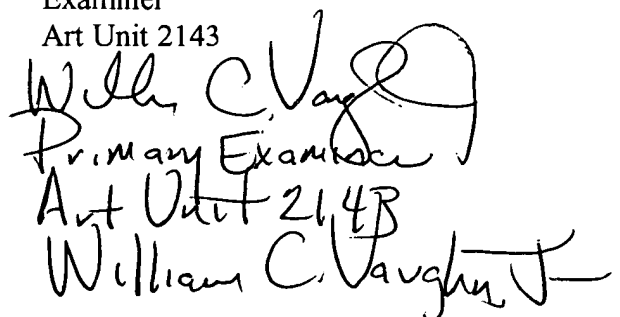 Examiner
Art Unit 2143
William C. Vaughn
Primary Examiner
Art Unit 2143
William C. Vaughn Jr